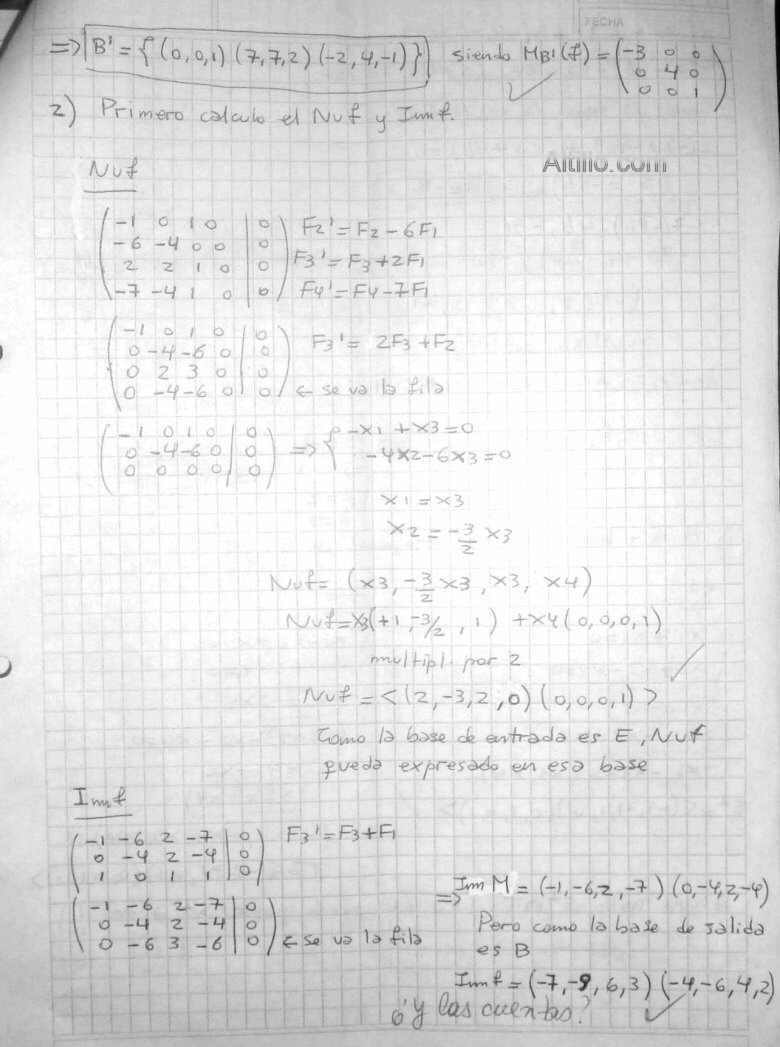 FECHA
=> B' = { (0,0,1) (7,7,2) (-2,4,-1) } siendo MB'(f) = ( -3 0 0
0 4 0
0 0 1 )
2) Primero calculo el Nuf y Imf.
Altillo.com
Nuf
( -1 0 1 0 | 0 ) F2' = F2 - 6F1
-6 -4 0 0 | 0
2 2 1 0 | 0 F3' = F3 + 2F1
-7 -4 1 0 | 0 F4' = F4 - 7F1
( -1 0 1 0 | 0 ) F3' = 2F3 + F2
0 -4 -6 0 | 0
0 2 3 0 | 0
0 -4 -6 0 | 0 ← se va la fila
( -1 0 1 0 | 0 ) => { -x1 + x3 = 0
0 -4 -6 0 | 0 -4x2 - 6x3 = 0
0 0 0 0 | 0
x1 = x3
x2 = -3/2 x3
Nuf = (x3, -3/2 x3, x3, x4)
Nuf = x3(+1, -3/2, 1) + x4(0,0,0,1)
multipl. por 2
Nuf = <(2,-3,2,0) (0,0,0,1)>
Como la base de entrada es E, Nuf
queda expresado en esa base
Imf
( -1 -6 2 -7 | 0 ) F3' = F3 + F1
0 -4 2 -4 | 0
1 0 1 1 | 0
( -1 -6 2 -7 | 0 )
0 -4 2 -4 | 0
0 -6 3 -6 | 0 ← se va la fila
=> Im M = (-1,-6,2,-7) (0,-4,2,-4)
Pero como la base de salida
es B
Imf = (-7,-9,6,3) (-4,-6,4,2)
¿Y las cuentas?